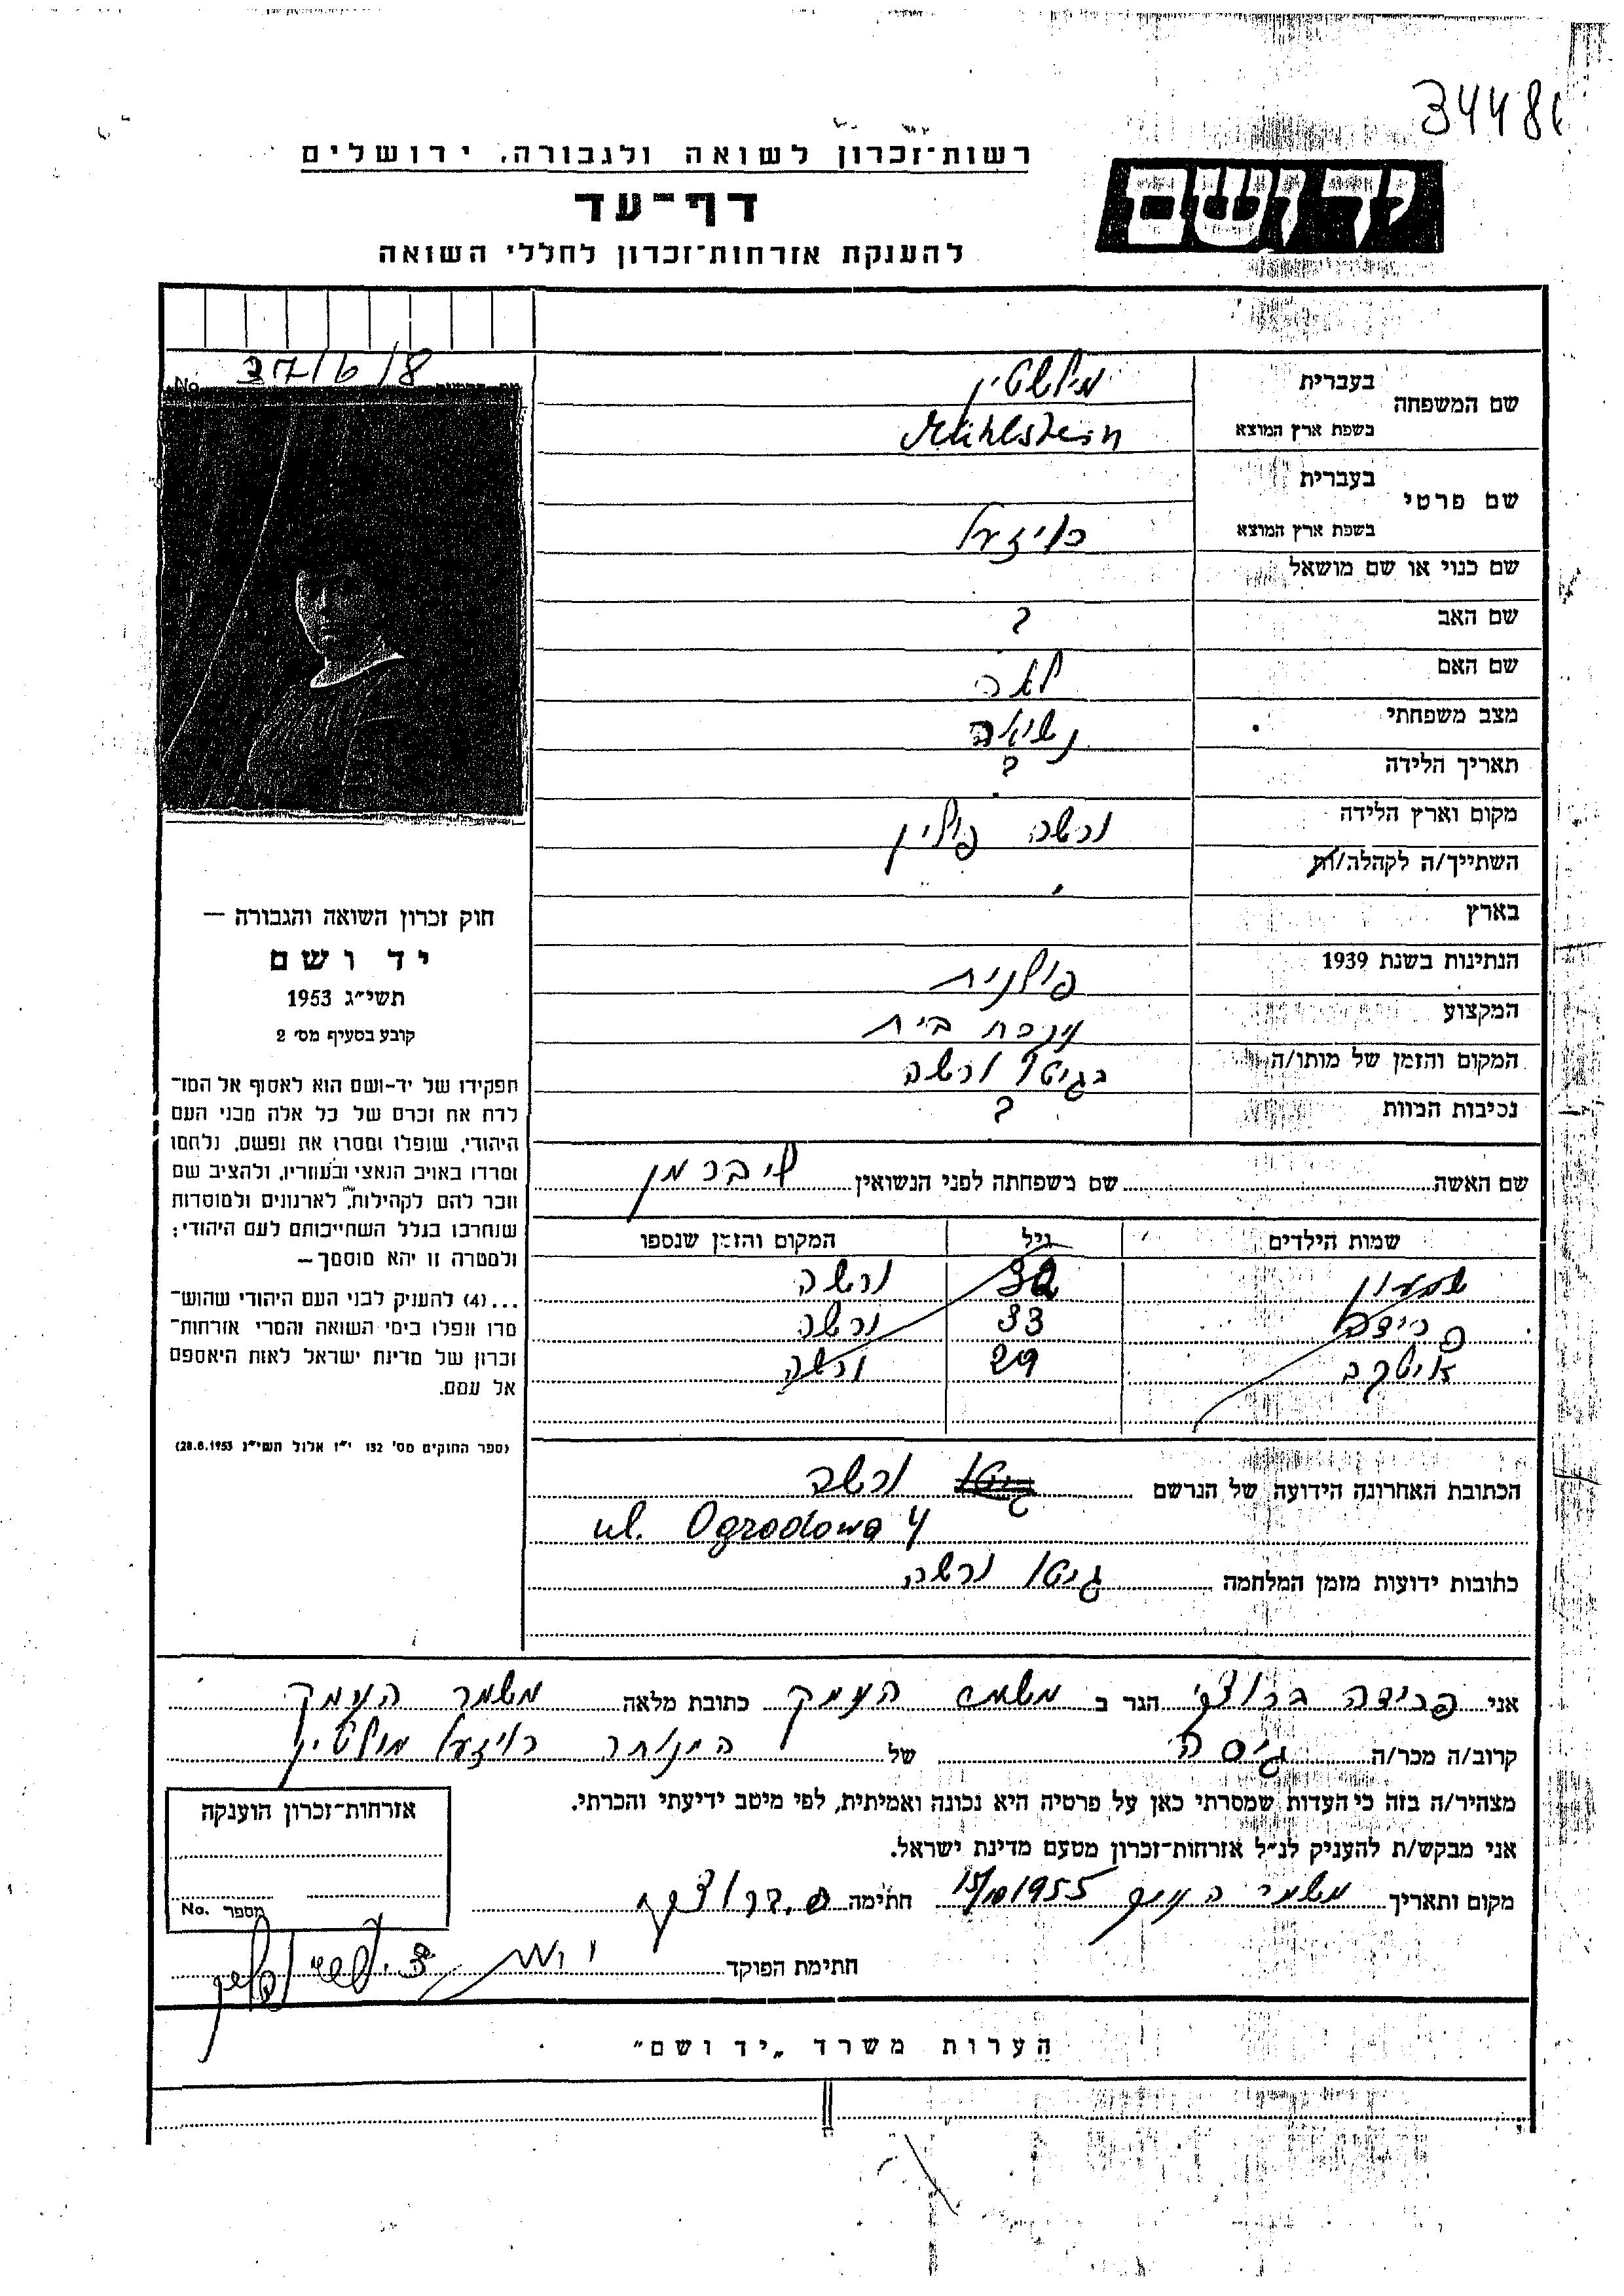 34481
רשות־זכרון לשואה ולגבורה, ירושלים
יד ושם
דף־עד
להענקת אזרחות־זכרון לחללי השואה
No. 37/6/8
שם המשפחה בעברית מילשטיין
בשפת ארץ המוצא Mühlstein
שם פרטי בעברית
בשפת ארץ המוצא רויזעל
שם כנוי או שם מושאל
שם האב ?
שם האם לאה
מצב משפחתי נשואה
תאריך הלידה ?
מקום וארץ הלידה ורשה פולין
השתייך/ה לקהלה/ות
בארץ
הנתינות בשנת 1939 פולנית
המקצוע עקרת בית
המקום והזמן של מותו/ה בגיטו ורשה
נסיבות המוות ?
שם האשה שם משפחתה לפני הנשואין ליברמן
שמות הילדים גיל המקום והזמן שנספו
שמעון 32 ורשה
פרידה 33 ורשה
29 ורשה
הכתובת האחרונה הידועה של הנרשם גיטו ורשה
ul. Ogrodowa 4
כתובות ידועות מזמן המלחמה גיטו ורשה
חוק זכרון השואה והגבורה —
יד ושם
תשי״ג 1953
קובע בסעיף מס׳ 2
תפקידו של יד־ושם הוא לאסוף אל המו־
לדת את זכרם של כל אלה מבני העם
היהודי, שנפלו ומסרו את נפשם, נלחמו
ומרדו באויב הנאצי ובעוזריו, ולהציב שם
וזכר להם לקהילות, לארגונים ולמוסדות
שנחרבו בגלל השתייכותם לעם היהודי;
ולמטרה זו יהא מוסמך —
...(4) להעניק לבני העם היהודי שהוש־
מדו ונפלו בימי השואה והמרי אזרחות־
זכרון של מדינת ישראל לאות היאספם
אל עמם.
(ספר החוקים מס׳ 132 י״ז אלול תשי״ג 28.8.1953)
אני פרידה ברוצקי הגר ב משמר העמק כתובת מלאה משמר העמק
קרוב/ה מכר/ה גיסה של המנוחה רויזעל מילשטיין
מצהיר/ה בזה כי העדות שמסרתי כאן על פרטיה היא נכונה ואמיתית, לפי מיטב ידיעתי והכרתי.
אני מבקש/ת להעניק לנ״ל אזרחות־זכרון מטעם מדינת ישראל.
מקום ותאריך משמר העמק 15/10 1955 חתימה פ. ברוצקי
חתימת הפוקד
אזרחות־זכרון הוענקה
מספר No.
הערות משרד „יד ושם״